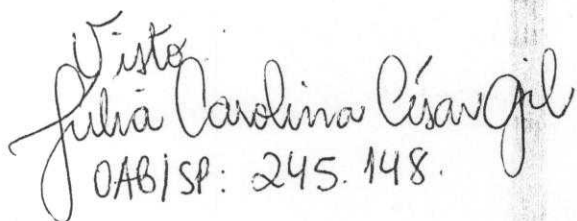 Visto
Julia Carolina César Gil
OAB/SP: 245.148.